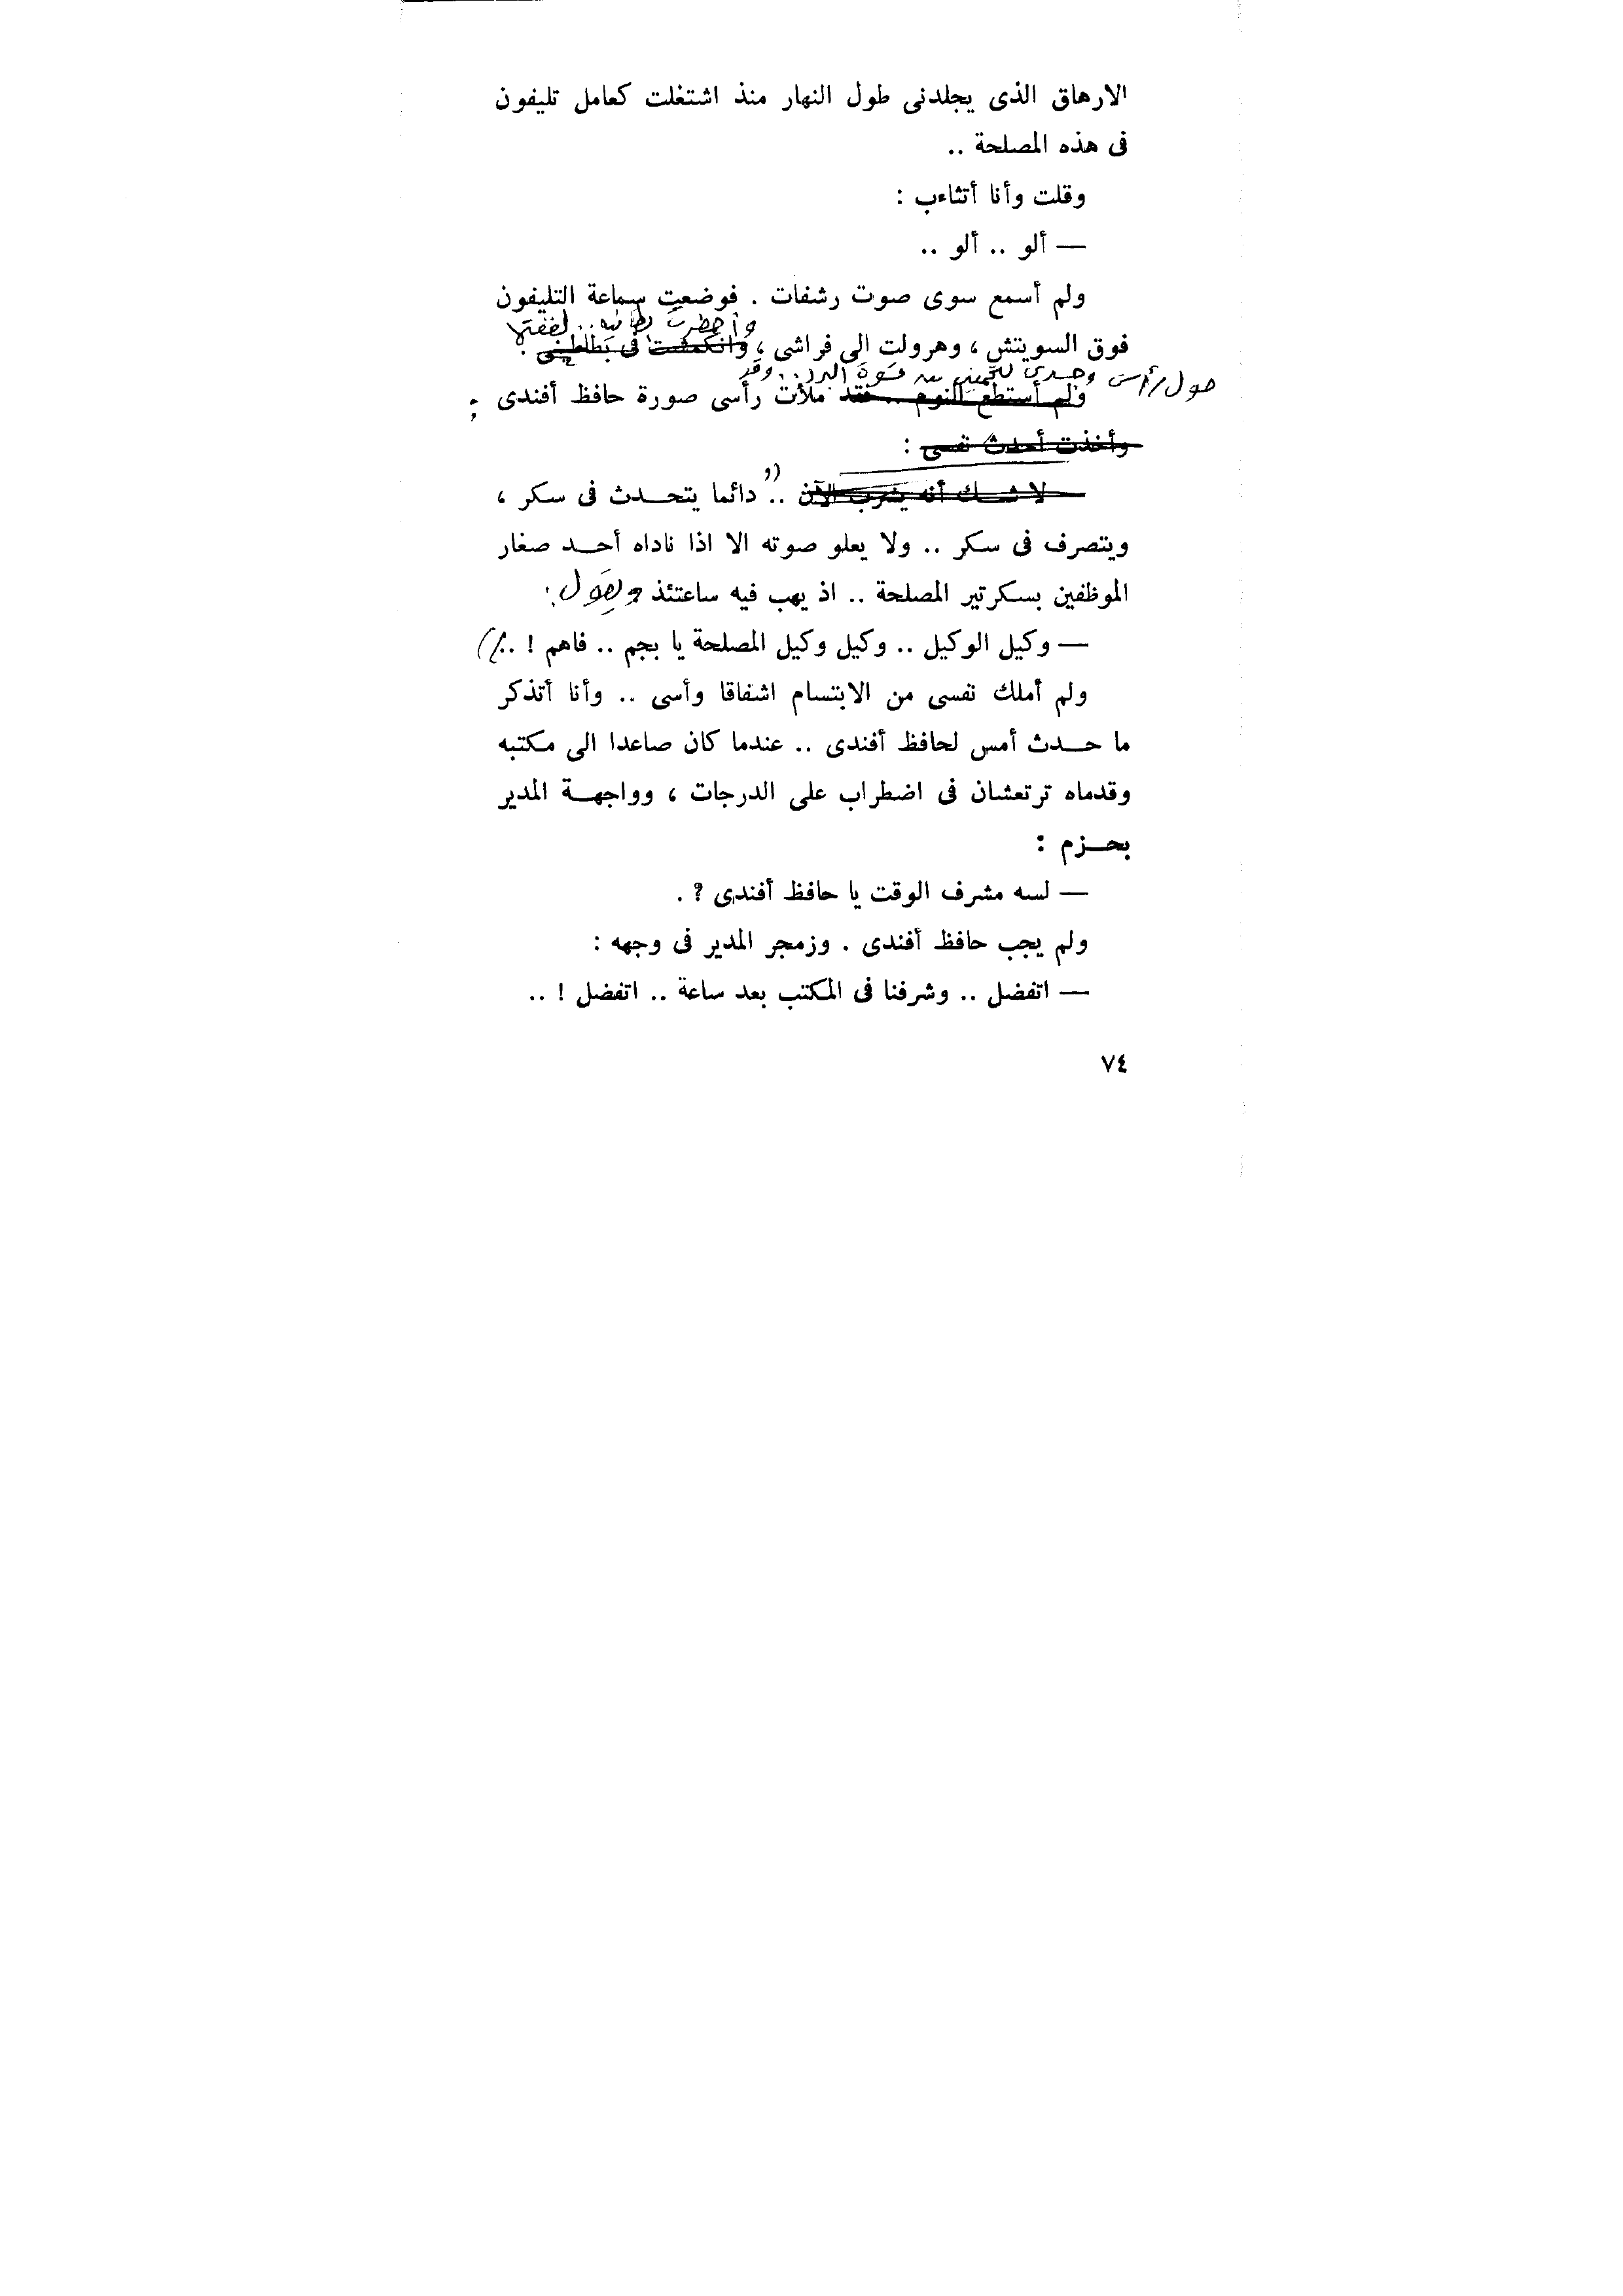 الارهاق الذى يجلدنى طول النهار منذ اشتغلت كعامل تليفون
فى هذه المصلحة ..
وقلت وأنا أتثاءب :
— ألو .. ألو ..
ولم أسمع سوى صوت رشفات . فوضعت سماعة التليفون
وأحضرت بطانيه .. لففتها
فوق السويتش ، وهرولت الى فراشى ، وانكمشت فى بطاطينى .
حول رأسى وجسدى لتحمينى من قسوة البرد .. وقد
ولم أستطع النوم .. فقد ملأت رأسى صورة حافظ أفندى ;
وأخذت أحدث نفسى :
لا شـــك أنه يشرب الآن .. دائما يتحـــدث فى سكر ،
ويتصرف فى سكر .. ولا يعلو صوته الا اذا ناداه أحـــد صغار
الموظفين بسكرتير المصلحة .. اذ يهب فيه ساعتئذ ويقول :
— وكيل الوكيل .. وكيل وكيل المصلحة يا بجم .. فاهم ! ..
ولم أملك نفسى من الابتسام اشفاقا وأسى .. وأنا أتذكر
ما حـــدث أمس لحافظ أفندى .. عندما كان صاعدا الى مكتبه
وقدماه ترتعشان فى اضطراب على الدرجات ، وواجهـــة المدير
بحـــزم :
— لسه مشرف الوقت يا حافظ أفندى ? .
ولم يجب حافظ أفندى . وزمجر المدير فى وجهه :
— اتفضل .. وشرفنا فى المكتب بعد ساعة .. اتفضل ! ..
٧٤